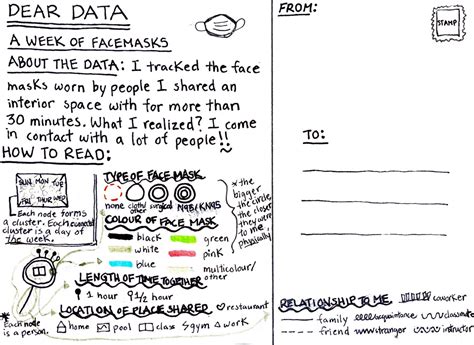 DEAR DATA
A WEEK OF FACEMASKS
ABOUT THE DATA: I tracked the face
masks worn by people I shared an
interior space with for more than
30 minutes. What I realized? I come
in contact with a lot of people!!
HOW TO READ:
SUN MON TUE
FRI THUR WED
Each node forms
a cluster. Each
cluster is a day of
the week.
TYPE OF FACE MASK
none cloth/other surgical N95/KN95
* the bigger
the circle,
the closer
they were
to me,
physically
COLOUR OF FACE MASK
black green
white pink
blue multicolour/
other
LENGTH OF TIME TOGETHER
1 hour 9 1/2 hour
LOCATION OF PLACE SHARED restaurant
home pool class gym work
*Each node
is a person.
FROM:
STAMP
TO:
RELATIONSHIP TO ME coworker
family acquaintance classmate
friend stranger instructor